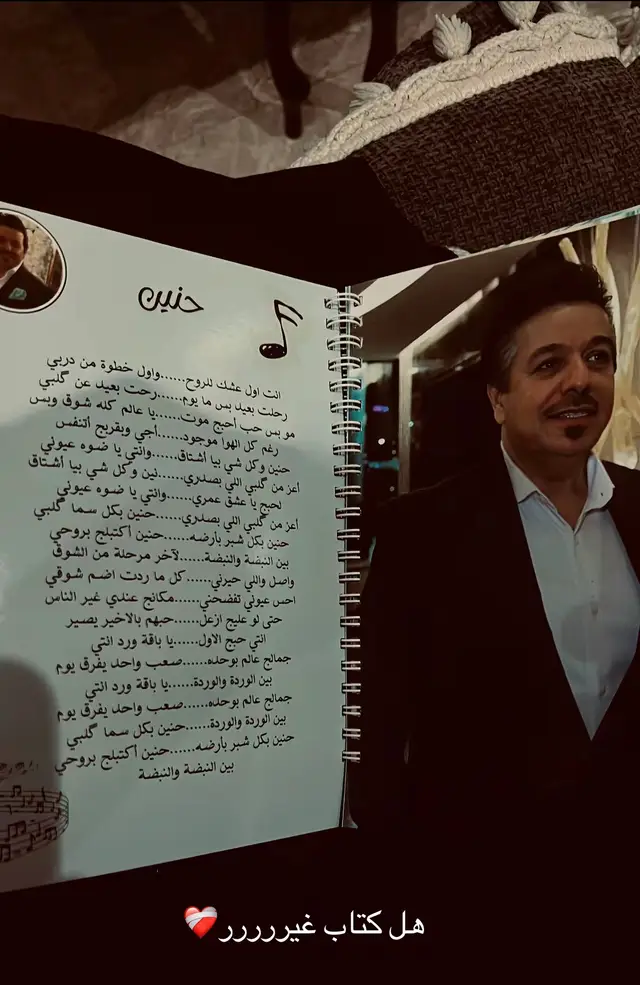 حنين
انت اول عشك للروح......واول خطوة من دربي
رحلت بعيد بس ما يوم......رحت بعيد عن گلبي
مو بس حب أحبج موت......يا عالم كله شوق وبس
رغم كل الهوا موجود......أجي وبقربج أتنفس
حنين وكل شي بيا أشتاق......وانتي يا ضوه عيوني
أعز من گلبي اللي بصدري......نين وكل شي بيا أشتاق
لحبج يا عشق عمري......وانتي يا ضوه عيوني
أعز من گلبي اللي بصدري......حنين بكل سما گلبي
حنين بكل شبر بأرضه......حنين أكتبلج بروحي
بين النبضة والنبضة......لآخر مرحلة من الشوق
واصل واللي حيرني......كل ما ردت اضم شوقي
احس عيوني تفضحني......مكانج عندي غير الناس
حتى لو عليج ازعل......حبهم بالاخير يصير
انتي حبج الاول......يا باقة ورد انتي
جمالج عالم بوحده......صعب واحد يفرق يوم
بين الوردة والوردة......يا باقة ورد انتي
جمالج عالم بوحده......صعب واحد يفرق يوم
بين الوردة والوردة......حنين بكل سما گلبي
حنين بكل شبر بأرضه......حنين أكتبلج بروحي
بين النبضة والنبضة
هل كتاب غيررررر❤️‍🩹